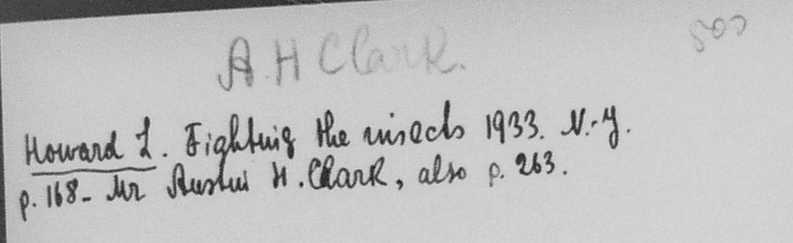 A. H Clark.
500
Howard L. Fighting the insects 1933. N.-Y.
p. 168 - Mr Austin H. Clark, also p. 263.